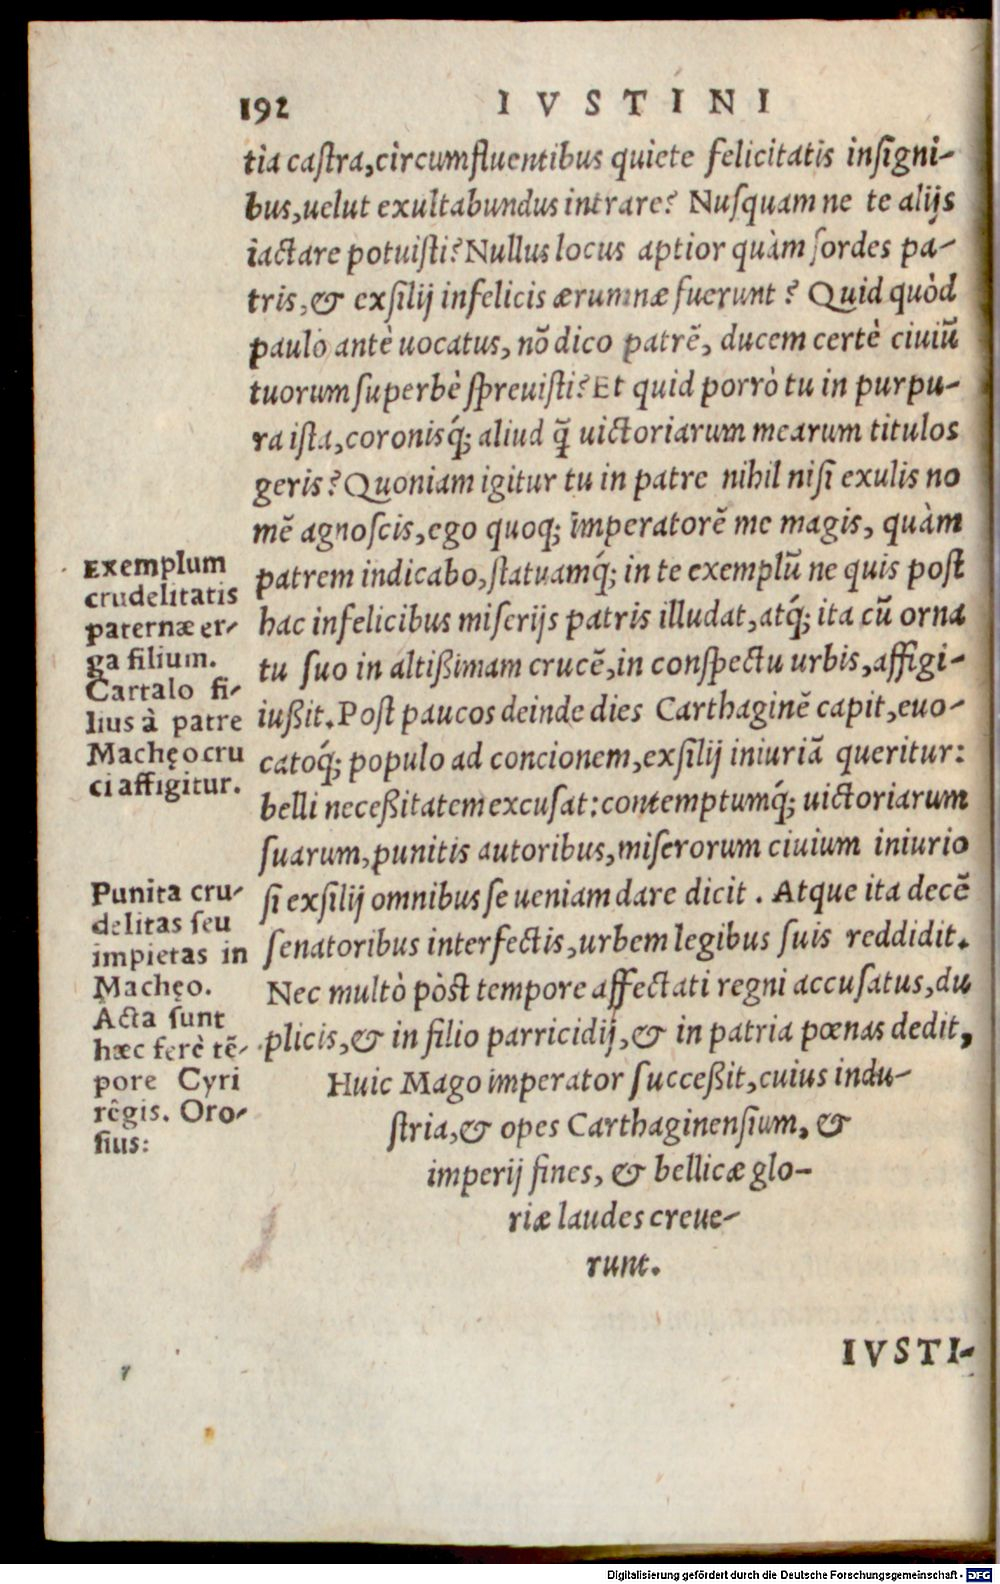 192 IVSTINI
tia castra, circumfluentibus quiete felicitatis insigni-
bus, uelut exultabundus intrare? Nusquam ne te alijs
iactare potuisti? Nullus locus aptior quàm sordes pa-
tris, & exsilij infelicis ærumnæ fuerunt? Quid quòd
paulo antè uocatus, nõ dico patrẽ, ducem certè ciuiũ
tuorum superbè spreuisti? Et quid porrò tu in purpu-
ra ista, coronisq́; aliud q̃ uictoriarum mearum titulos
geris? Quoniam igitur tu in patre nihil nisi exulis no
mẽ agnoscis, ego quoq; imperatorẽ me magis, quàm
patrem indicabo, statuamq́; in te exemplũ ne quis post
hac infelicibus miserijs patris illudat, atq́; ita cũ orna
tu suo in altißimam crucẽ, in conspectu urbis, affigi-
iußit. Post paucos deinde dies Carthaginẽ capit, euo-
catoq́; populo ad concionem, exsilij iniuriã queritur:
belli neceßitatem excusat: contemptumq́; uictoriarum
suarum, punitis autoribus, miserorum ciuium iniurio
si exsilij omnibus se ueniam dare dicit. Atque ita decẽ
senatoribus interfectis, urbem legibus suis reddidit.
Nec multò pòst tempore affectati regni accusatus, du
plicis, & in filio parricidij, & in patria pœnas dedit,
Huic Mago imperator succeßit, cuius indu-
stria, & opes Carthaginensium, &
imperij fines, & bellicæ glo-
riæ laudes creue-
runt.
Exemplum
crudelitatis
paternæ er-
ga filium.
Cartalo fi-
lius à patre
Machęo cru
ci affigitur.
Punita cru-
delitas seu
impietas in
Machęo.
Acta sunt
hæc ferè tẽ-
pore Cyri
rêgis. Oro-
sius:
IVSTI-
Digitalisierung gefördert durch die Deutsche Forschungsgemeinschaft - DFG